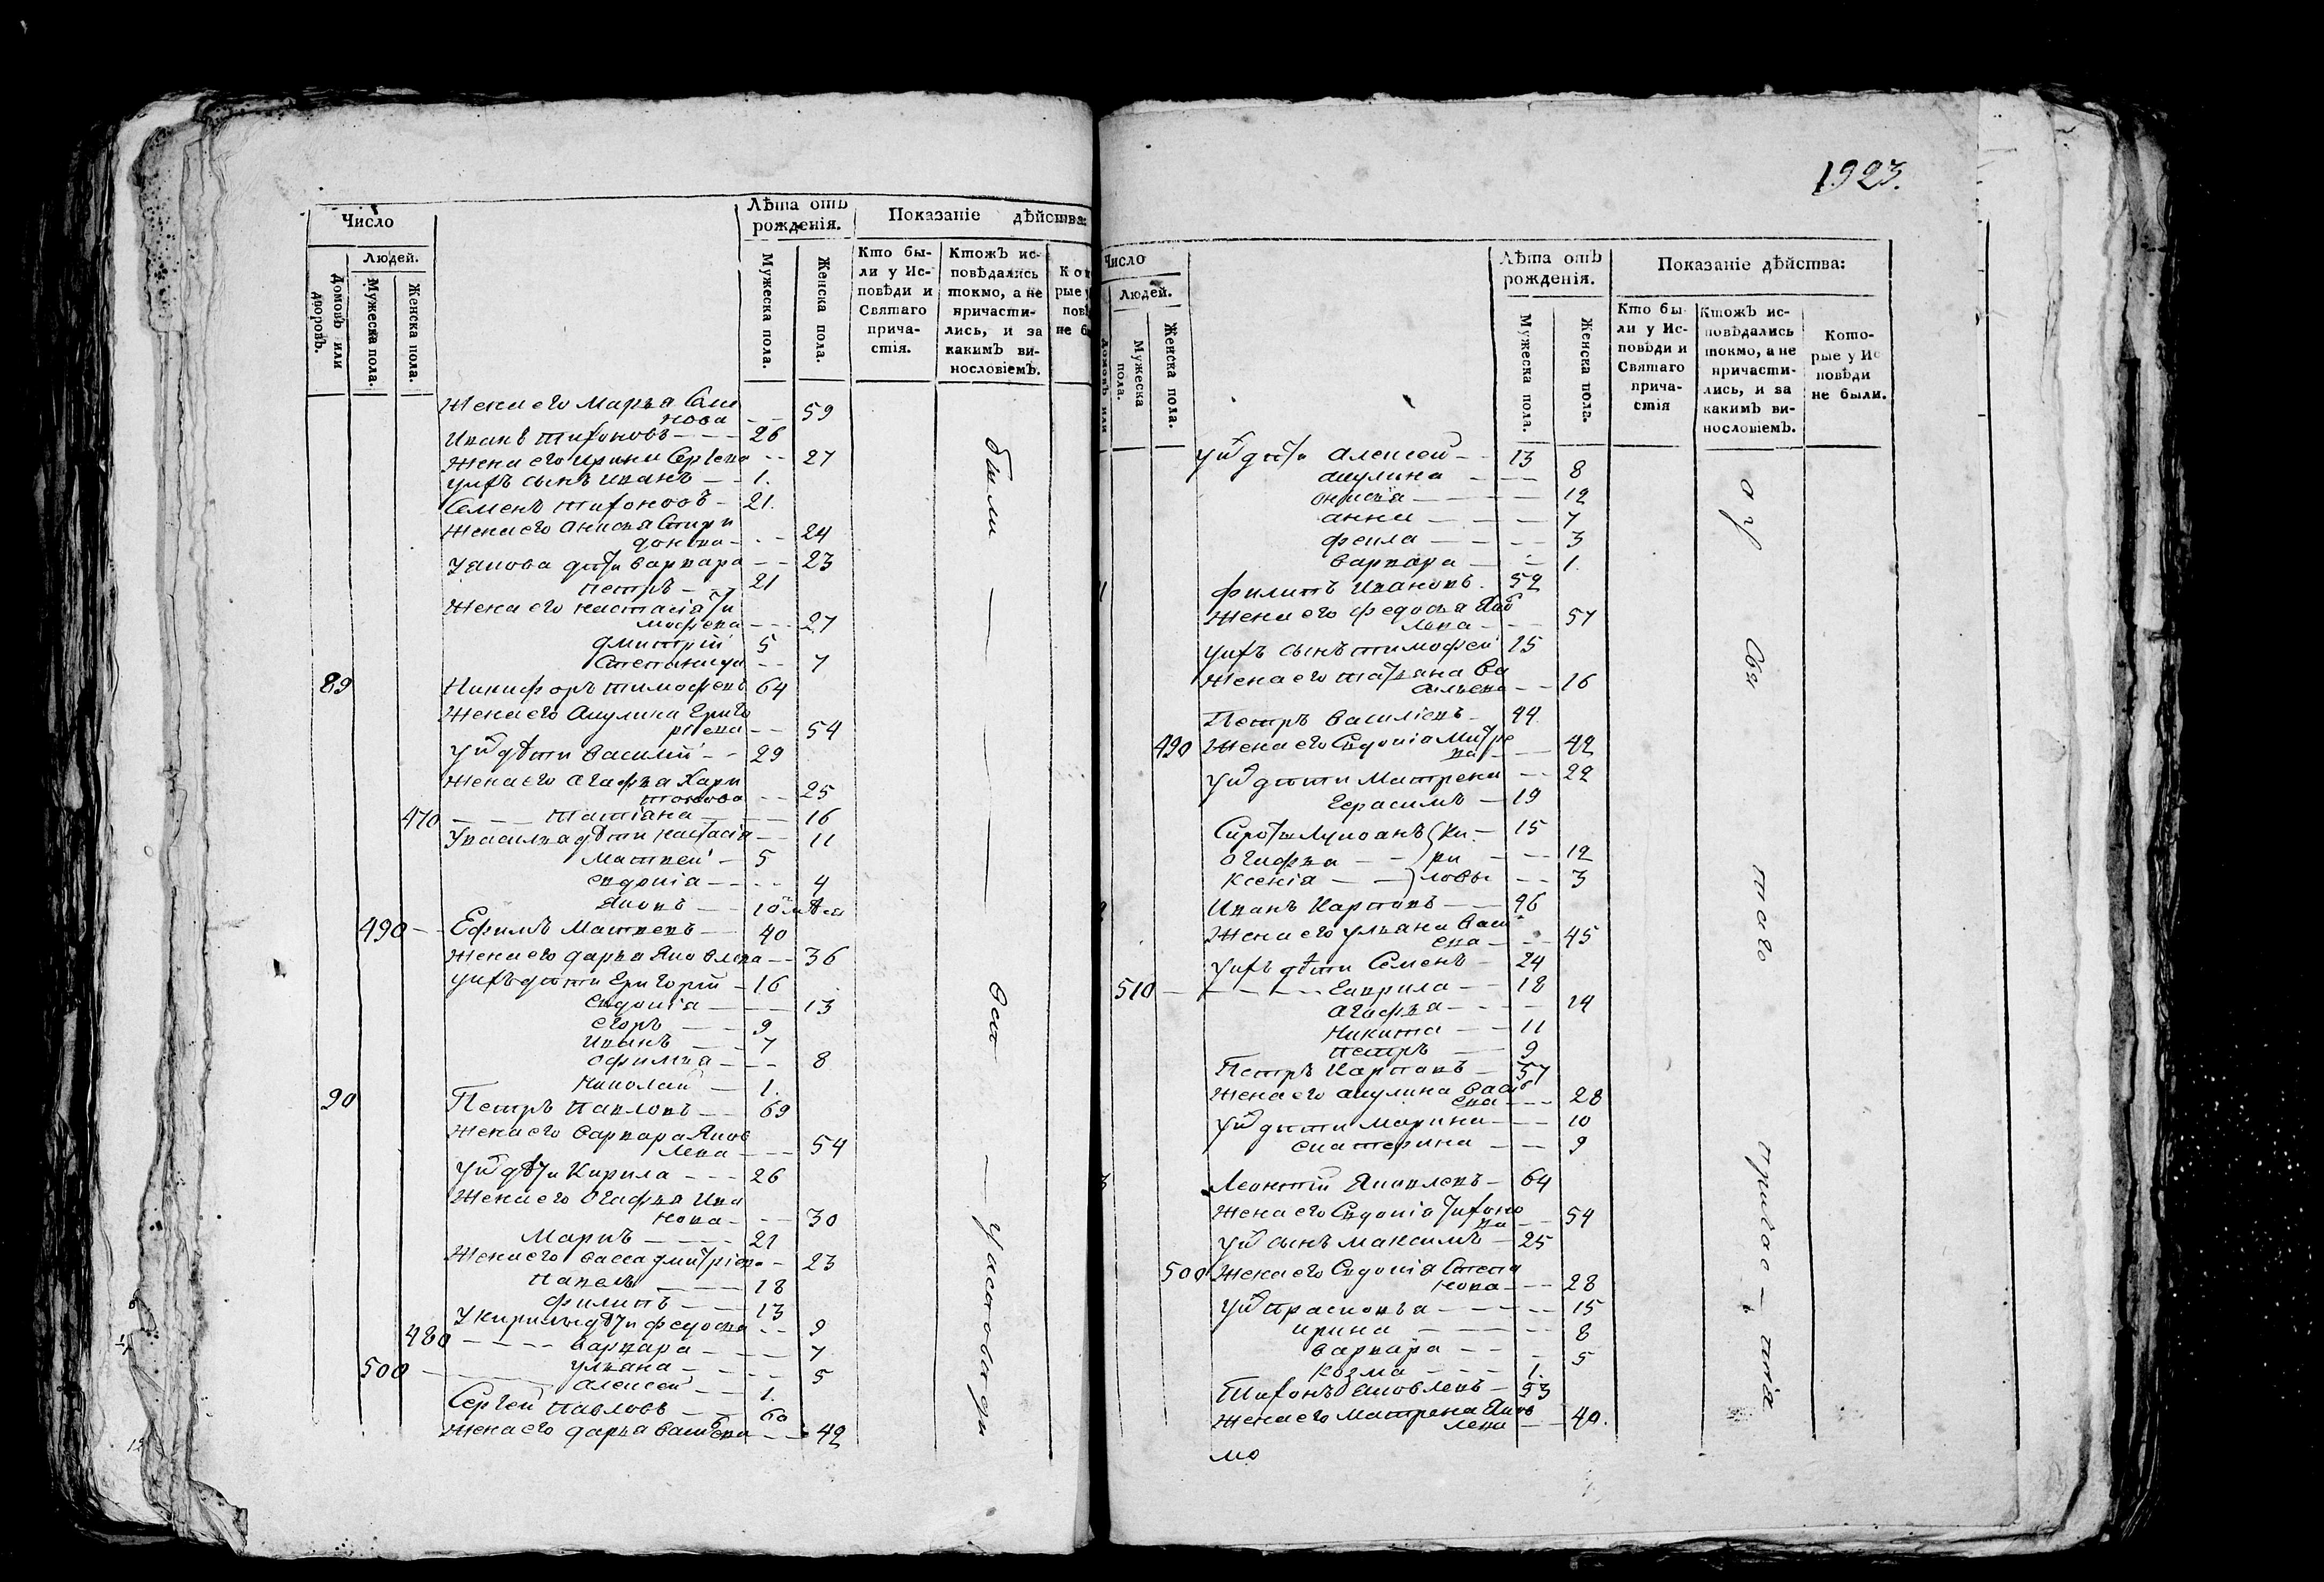 Число
Людей.
Домовъ или дворовъ.
Мужеска пола.
Женска пола.
Лѣта отъ рожденія.
Мужеска пола.
Женска пола.
Показаніе дѣйства:
Кто бы-
ли у Ис-
повѣди и
Святаго
прича-
стія.
Ктожъ ис-
повѣдались
токмо, а не
причасти-
лись, и за
какимъ ви-
нословіемъ.
Жена его Марья Сим
нова - - 59
Иванъ Тихоновъ - - - 26
Жена его Ирина Сергѣева - - 27
Ихъ сынъ Иванъ - - 1.
Семенъ Тихоновъ - 21.
Жена его Анисья Спири
донова - - - 24
дѣти Варвара - - 23
Петръ - - 21
Жена его Настасія Ти
мофева - - - 27
Дмитрій 5
Степанида - - 7
89 Никифоръ Тимофевъ 64
Жена его Акулина Григо
рьева - - 54
У них дѣти Василій - - 29
Жена его Агафья Хари
тонова - - 25
470 - - - Татіана - - - 16
У Василья дѣти Настасія - - 11
Матвей - 5
Евдокія - - - - 4
Яковъ - - 10
490 - - Ефимъ Матвевъ - - 40
Жена его Дарья Яковлева - - 36
У ихъ дѣти Григорій - 16
Евдокія - - - - 13
Егоръ - - - 9
Иванъ - - - 7
Офимья - - - 8
Николай - 1.
90 Петръ Павловъ - - 69
Жена его Варвара Яков
лева - - - 54
дѣти Кирила - - - 26
Жена его Огафья Ива
нова - - - 30
Маркъ - - - - 21
Жена его Васса Дмитріева - - 23
Павелъ - - - 18
Филипъ - - 13
У Кирилы дѣти Федосья - - 9
480 - - - - Варвара - - - - 7
Ульяна - - - - 5
500 - - - Алексей - - 1.
Сергей Павловъ - - 60
Жена его Дарья - - 42
были — — —
1923.
Число
Людей.
Мужеска пола.
Женска пола.
Лѣта отъ рожденія.
Мужеска пола.
Женска пола.
Показаніе дѣйства:
Кто бы-
ли у Ис-
повѣди и
Святаго
прича-
стія
Ктожъ ис-
повѣдались
токмо, а не
причасти-
лись, и за
какимъ ви-
нословіемъ.
Кото-
рые у Ис
повѣди
не были.
дѣти Алексей - - 13
Акулина - - - 8
Онисья - - - - 12
Анна - - - - 7
Фекла - - - - 3
Варвара - - 1.
Филипъ Ивановъ. 52
Жена его Федосья Яков
лева - - - 57
У ихъ сынъ Тимофей 15
Жена его Татьяна Ва
сильева - - 16
Петръ Василіевъ - 44
490 Жена его Евдокія Митре
ва - - - 42
дѣти Матрена - - 22
Герасимъ - 19
Сироты Лукоанъ Ки - 15
Огафья - - ри - - - 12
Ксенія - - ловы - - 3
Иванъ Карповъ - - 46
Жена его Ульяна Васи
ева - - - 45
У ихъ дѣти Семенъ - 24
510 - - - - - Гаврила - - 18
Агафья - - - - 14
Никита - - 11
Петръ - - 9
Петръ Карповъ - 37
Жена его Акулина Васи
ева - - - 28
дѣти Марина - - - 10
Екатерина - - 9
Леонтій Яковлевъ - 64
Жена его Евдокія Тихоно
ва - - 54
сынъ Максимъ - 25
500 Жена его Евдокія Степа
нова - - - 28
Прасковья - - - - - 15
Ирина - - - - 8
Варвара - - - 5
Козма - - - 1.
Тихонъ Яковлевъ - 53
Жена его Матрена Яков
лева - - 40.